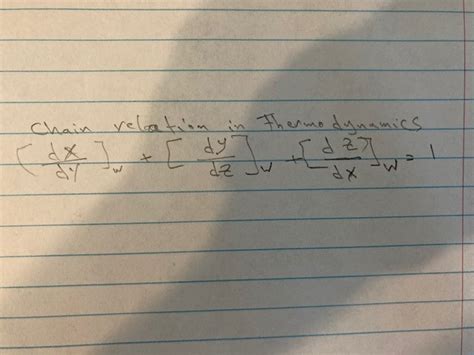 Chain relation in Thermodynamics
[dx/dy]w + [dy/dz]w + [dz/dx]w = 1